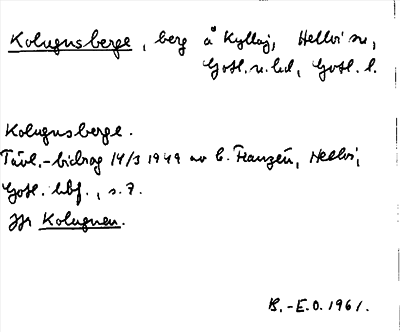 Kolugnsberge, berg å Kyllaj, Hellvi sn,
Gotl. n. hd, Gotl. l.
Kolugnsberge.
Tävl.-bidrag 14/3 1949 av C. Franzén, Hellvi,
Gotl. hbf., s. 7.
Jfr Kolugnen.
B.-E.O. 1961.